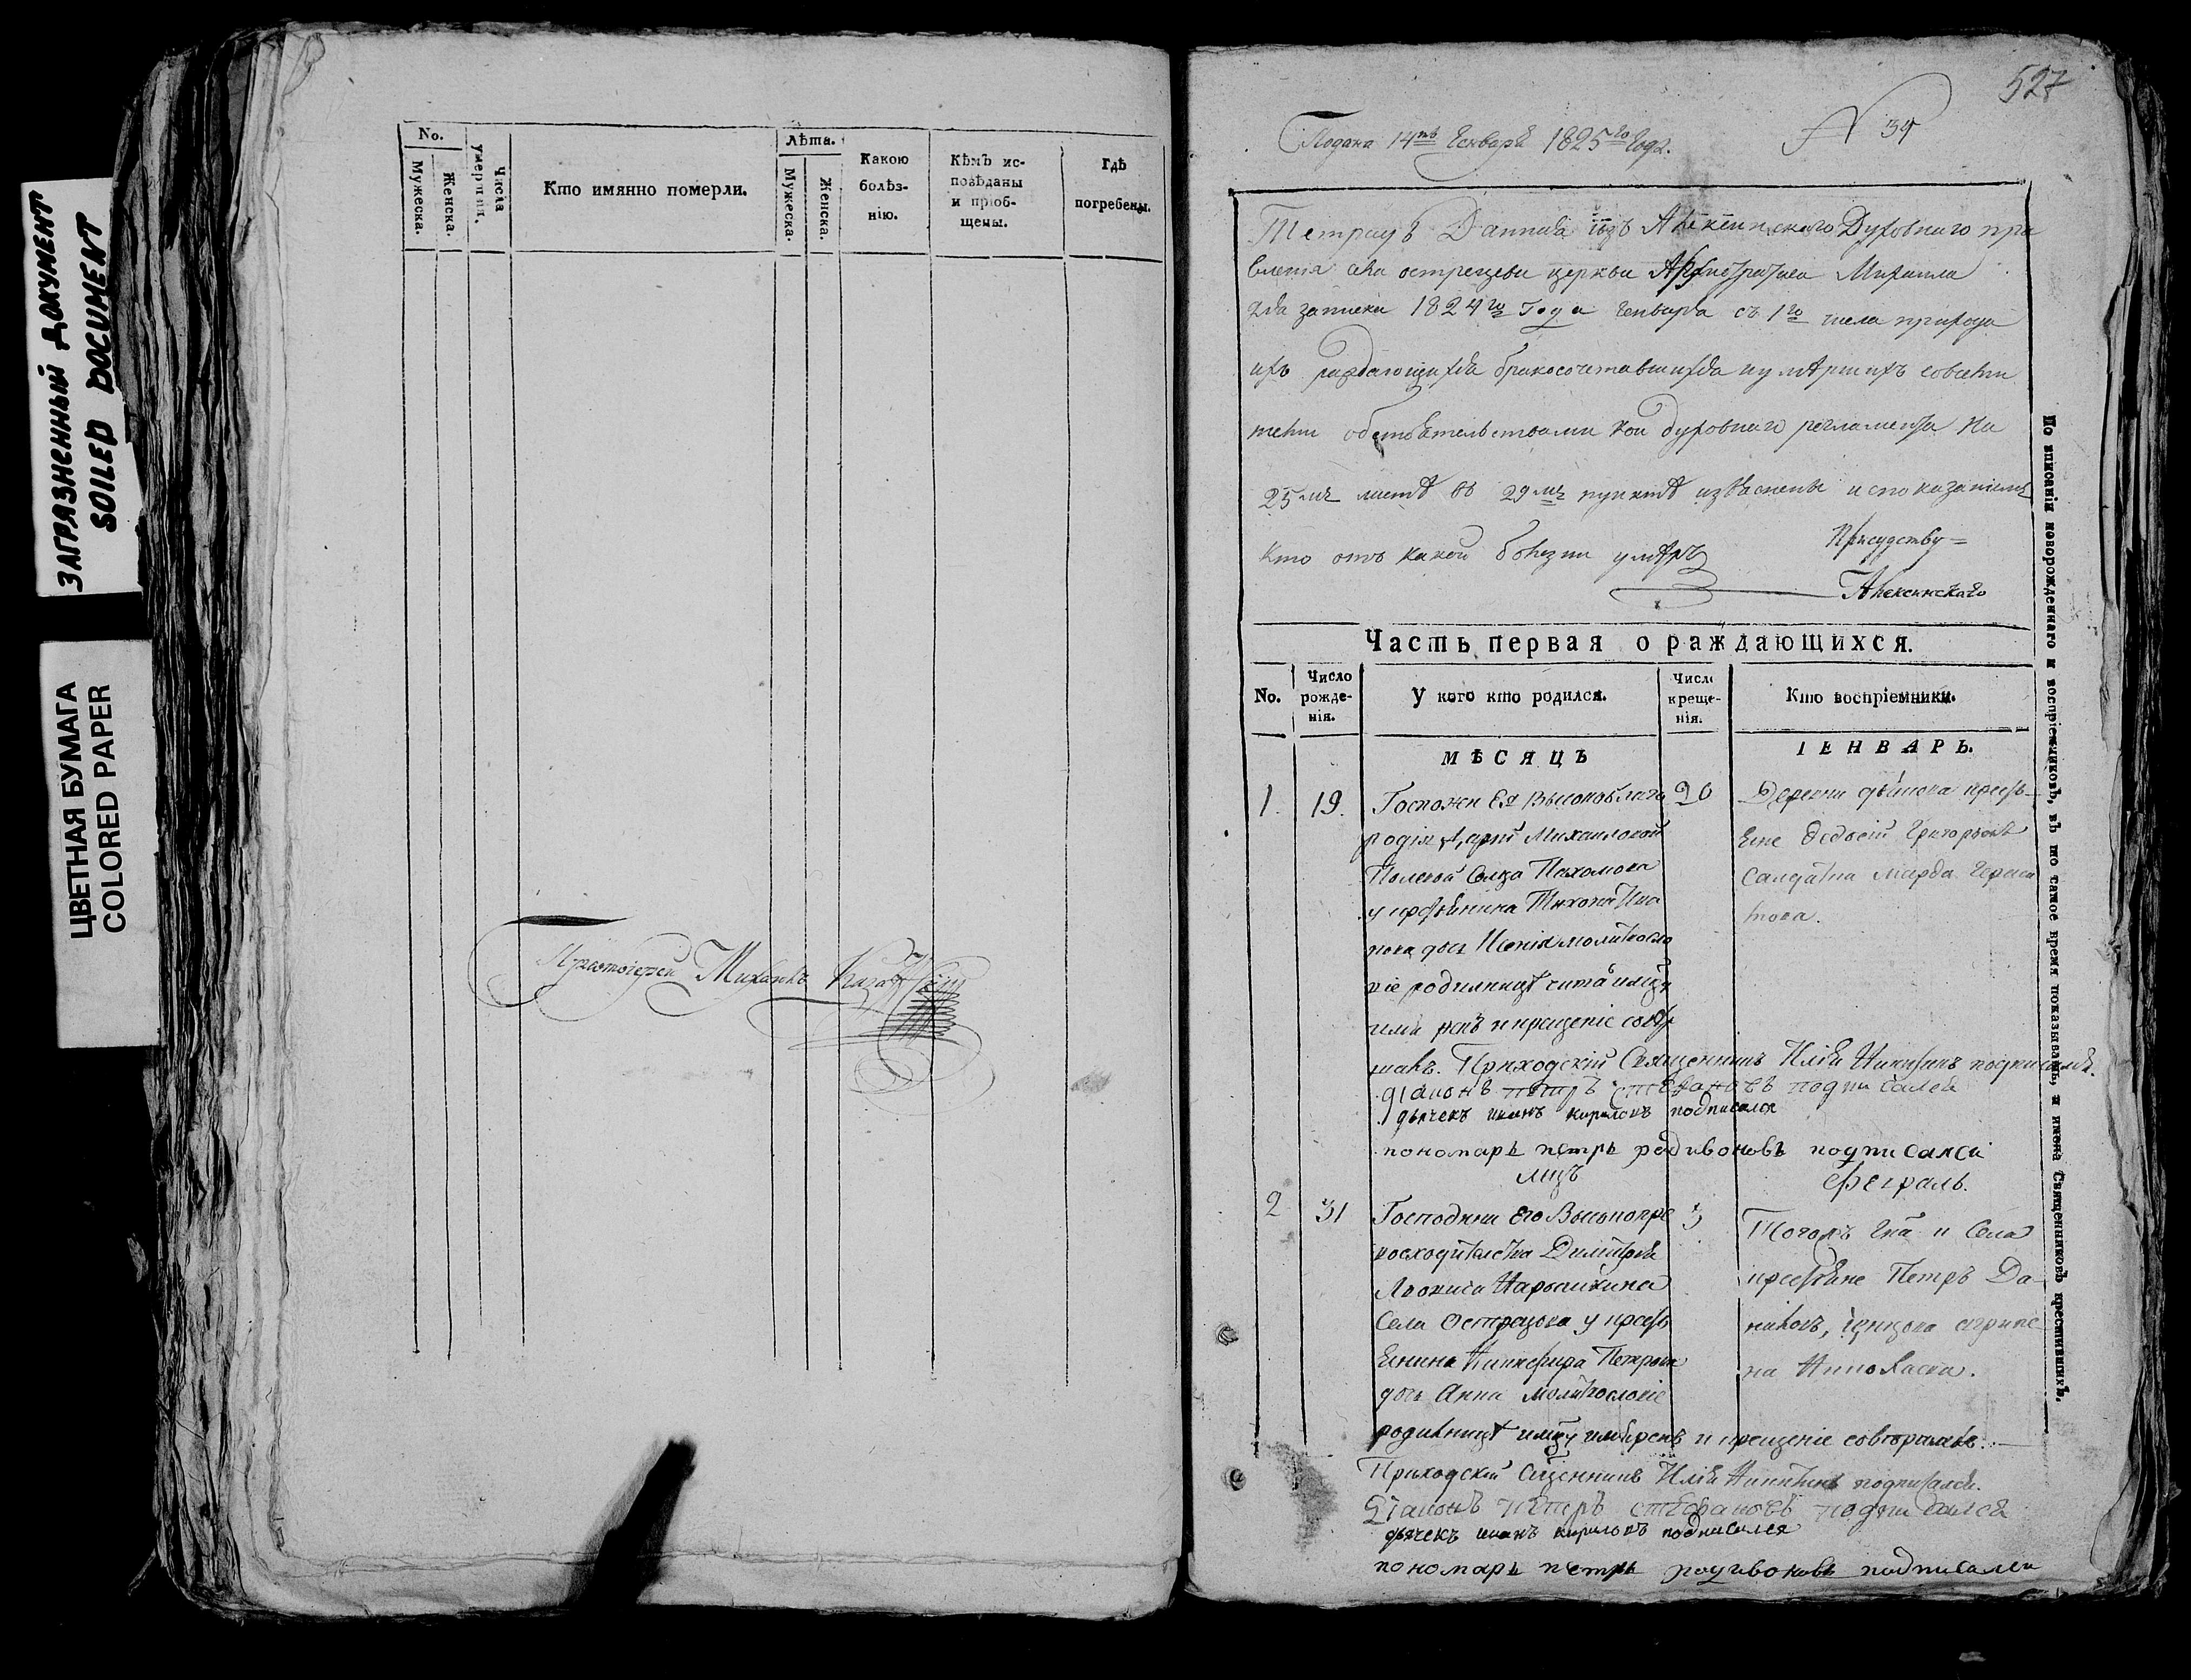 ЗАГРЯЗНЕННЫЙ ДОКУМЕНТ
SOILED DOCUMENT
ЦВЕТНАЯ БУМАГА
COLORED PAPER
No.
Мужеска.
Женска.
Числа умерших.
Кто имянно померли.
Лѣта.
Мужеска.
Женска.
Какою
болѣз-
нію.
Кѣмъ ис-
повѣданы
и приоб-
щены.
Гдѣ
погребены.
Протоіерей Михаилъ
527
Подана 14 Генваря 1825го года.
N 34
Тетрадь Данная изъ Алексинскаго Духовнаго пра
вленія села острецова церкви Архистратига Михаила
для записки 1824го Года Генваря съ 1го числа приходскихъ
раждающихся бракосочетавшихся и умершихъ со всеми
теми обстоятельствами кои духовнаго регламента на
25мъ листѣ въ 29мъ пунктѣ изъяснены и с показаніемъ
Кто отъ какой болезни умѣръ
Присудству=
Алексинскаго
Часть первая о раждающихся.
No.
Число
рожде-
нія.
У кого кто родился.
Число
креще-
нія.
Кто воспріемники.
МѢСЯЦЪ
ІЕНВАРЬ.
1. 19. Госпожи Ея Высокоблаго 20
родія Дарьи Михаиловой
Полевой Сельца Пахомова
у крестьянина Тихона
дочь Ксенія молитвосло
віе родильницѣ читалъ имя
имя рекъ и крещеніе совер
шалъ. Приходскій Священникъ Илія Никитинъ подписался.
діаконъ петръ стефановъ подписался
дьячекъ иванъ кириловъ подписался
пономарь петръ родивоновъ подписался
Деревни
крестья-
Солдатка
мцъ
Февраль.
2 31 Господина Его Высокопре 3
восходительства Димитрія
Львовича Нарышкина
Села Острецова у кресть
янина Никифора Петрова
дочь Анна молитвословіе
родильницѣ имя имярекъ и крещеніе совершалъ.
Тогожъ Гна и Села
крестьяне Петръ Да-
ниловъ,
Приходскій Сщенникъ Илія Никитинъ подписался.
Діаконъ петръ стефановъ подписался
дьячекъ иванъ кириловъ подписался
пономарь петръ родивоновъ подписался
По вписаніи новорожденнаго и воспріемниковъ, въ то самое время показывать, и имена Священниковъ крестившихъ.